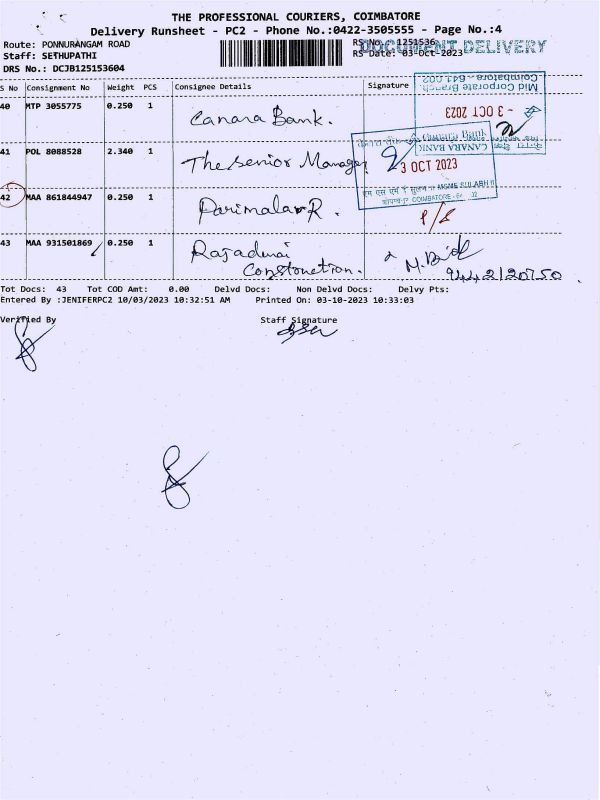 THE PROFESSIONAL COURIERS, COIMBATORE
Delivery Runsheet - PC2 - Phone No.:0422-3505555 - Page No.:4
Route: PONNURANGAM ROAD
RS No.: 1251536
DOCUMENT DELIVERY
Staff: SETHUPATHI
RS Date: 03-Oct-2023
DRS No.: DCJB125153604
S No Consignment No Weight PCS Consignee Details Signature
Mid Corporate Branch
Coimbatore - 641 002
- 3 OCT 2023
40 MTP 3055775 0.250 1 Canara Bank.
CANARA BANK
41 POL 8088528 2.340 1 The Senior Manager
3 OCT 2023
MSME SULABH
COIMBATORE
42 MAA 861844947 0.250 1 Parimala R.
43 MAA 931501869 0.250 1 Rajadurai
Construction.
Tot Docs: 43 Tot COD Amt: 0.00 Delvd Docs: Non Delvd Docs: Delvy Pts:
Entered By :JENIFERPC2 10/03/2023 10:32:51 AM Printed On: 03-10-2023 10:33:03
Verified By Staff Signature